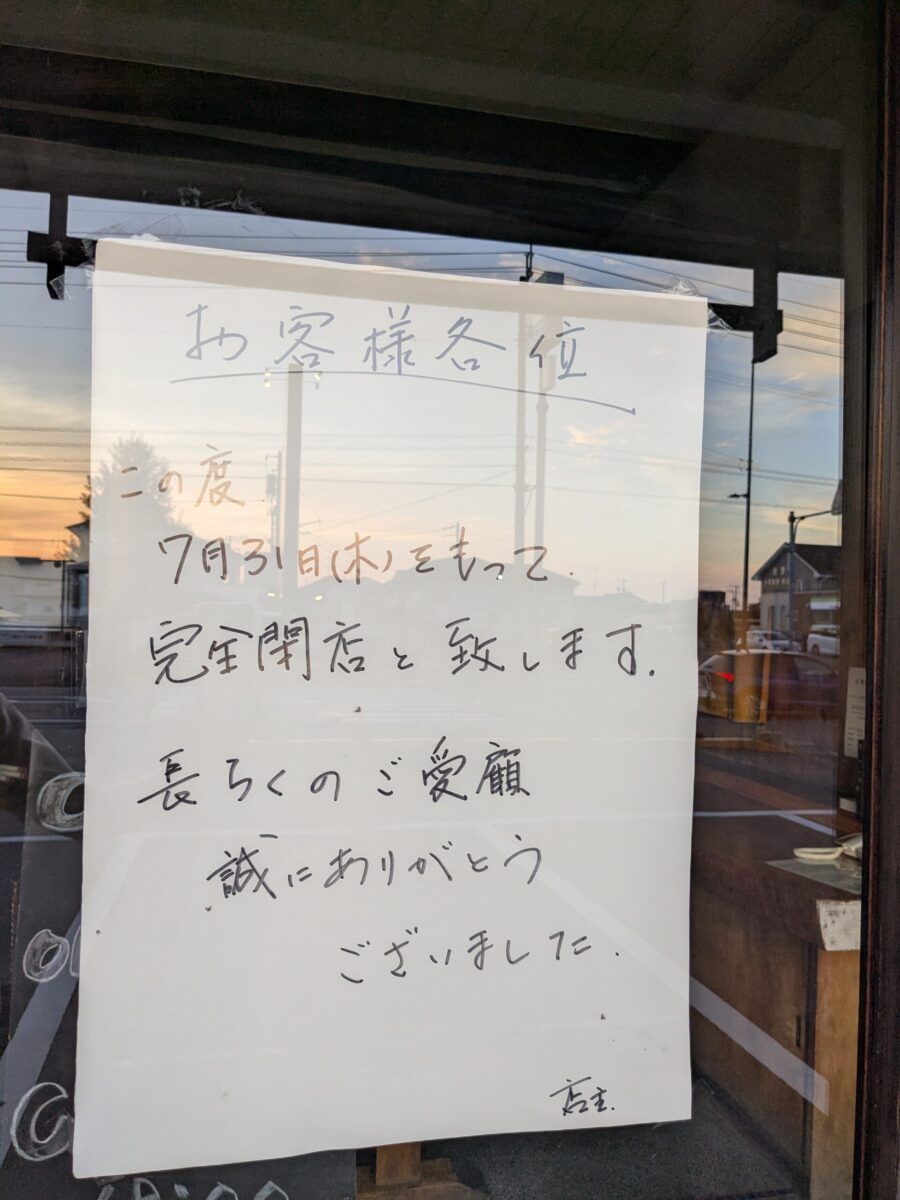 お客様各位
この度
7月31日(木)をもって.
完全閉店と致します.
長らくのご愛顧
誠にありがとう
ございました.
店主.